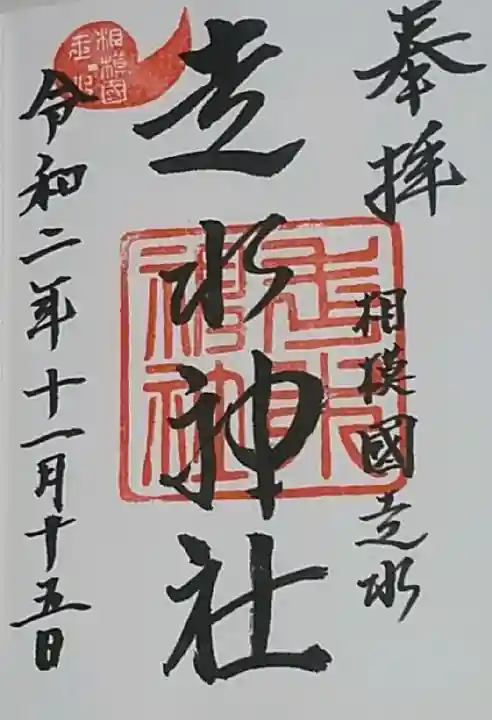 奉拝
相模國走水
走水神社
走水神社
令和二年十一月十五日
相模國走水